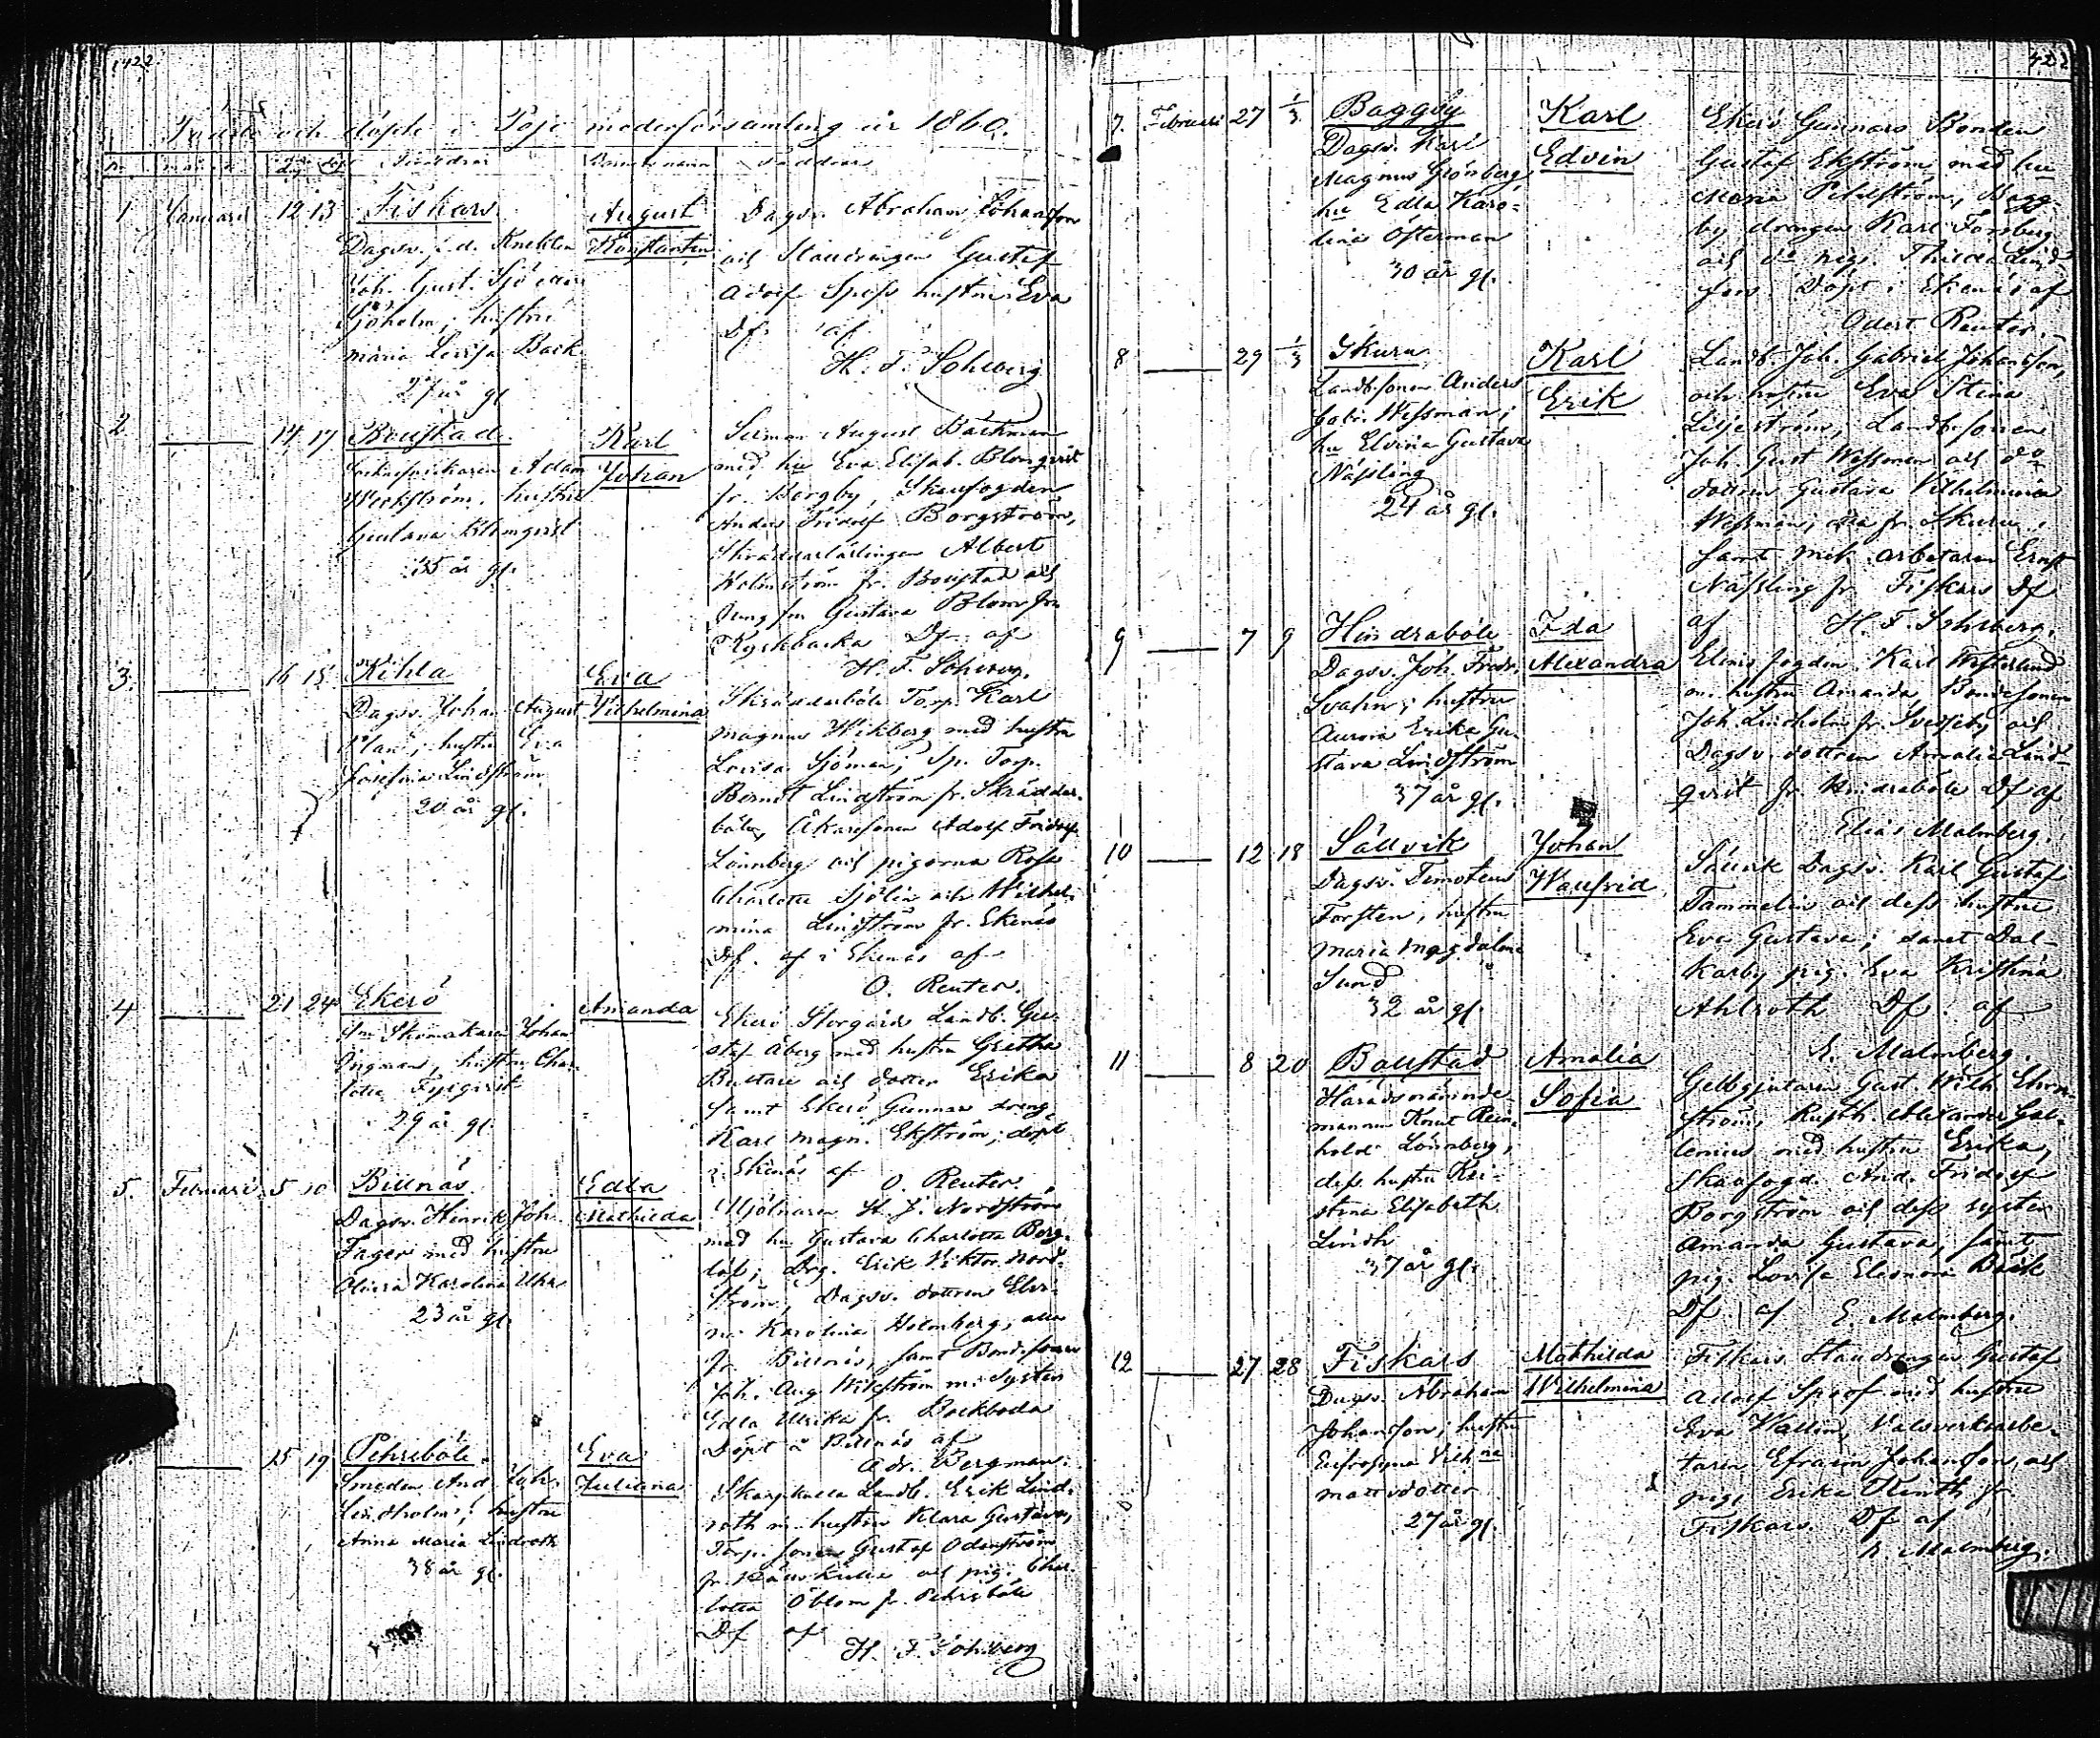 422
Födde och döpte i Pojo moderförsamling år 1860.
1 Januarii 12 13 Fiskars
Dagsv. f.d. Knekten
Joh. Gust. Sjöman
Sjöholm, hustru
Maria Lovisa Back
27 år gl.
August
Konstantin
Dagsv. Abraham Johansson
och Gustaf
Adolf hustru Eva
Df. af
2 14 17 Boustad
Adam
Weckström, hustru
Giuliana Blomqvist
35 år gl.
Karl
Johan
August Bäckman
med hu Eva Elisab. Blomqvist
fr. Borgby, Skoufogden
Anders Fridolf Borgström,
Skräddarlärlingen Albert
Holmström fr. Boustad och
Gustava Blom fr.
Kyrkbacka Df. af
3. 16 18
Dagsv. Johan August
hustru Eva
Josefina Lindström
20 år gl.
Eva
Vilhelmina
Skräddarböle Torp. Karl
Magnus Wikberg med hustru
Lovisa Sjöman; Sp. Torp.
Berndt Lindström fr. Skräddar-
böle, Åkaresonen Adolf Fridolf
Lönnberg och pigorna Rosa
Charlotta Sjölin och Wilhel-
mina Lindström fr. Ekenäs
Df. af i Ekenäs af
O. Reuter.
4 21 24 Ekerö
Skomakaren Johan
Ingman, hustru Char-
lotta
29 år gl.
Amanda
Ekerö Storgårds Landb. Gu-
staf Åberg med hustru Gretha
och dotter Erika
samt Ekerö Gunnars dreng
Karl Magn. Ekström; döpt
i Ekenäs af O. Reuter.
5. Februari 5 10 Billnäs
Dagsv. Henrik Joh.
Fager med hustru
Karolina
23 år gl.
Edla
Mathilda
Mjölnaren H. J. Nordström
med hu Gustava Charlotta Berg-
löf; Drg. Erik Viktor Nord-
ström, Dagsv. dottren Elvi-
na Karolina Holmberg, alla
fr. Billnäs, samt Bond.sonen
Joh. Aug. Wikström m. Systern
Edla Ulrika fr. Bockboda
Döpt å Billnäs af
Adr. Bergman.
15 19 Pehrsböle
Smeden And. Joh.
Lindholm, hustru
Anna Maria Lindroth
38 år gl.
Eva
Juliana
Skarpkulla Landb. Erik Lind-
roth m. hustru Klara Gustava,
Torp. sonen Gustaf
och pig. Char-
lotta Öblom fr. Pehrsböle
Df af
7. Februari 27 1/3 Baggby
Dagsv. Karl
Magnus Grönberg,
hu Edla Karo-
lina Österman
30 år gl.
Karl
Edvin
Ekerö Gunnars Bonden
Gustaf Ekström med hu
Maria Bagg-
by drengen Karl Forsberg
och do pig. Thilda Lind-
fors. Döpt i Ekenäs af
Odert Reuter.
8 29 1/3 Skuru
Landb.sonen Anders
Gabr. Wessman;
hu Elvina Gustava
Nässling
24 år gl.
Karl
Erik
Landb. Joh. Gabriel Johansson,
och hustru Eva Stina
Liljeström, Landb.sonen
Joh. Gust. Wessman och do
dottren Gustava Vilhelmina
Wessman, alla fr. Skuru,
samt mek. arbetaren Ernst
Nässling fr. Fiskars Df
af
9 7 9 Hindraböle
Dagsv. Joh. Fredr.
Svahn; hustru
Aurora Erika Gu-
stava Lindström
37 år gl.
Ida
Alexandra
Karl Westerlund
m. hustru Amanda, Bondesonen
Joh. Lindholm fr. och
Dagsv. dottren Amalia Lind-
qvist fr. Hindraböle Df af
Elias Malmberg.
10 12 18 Sällvik
Dagsv. Timoteus
Forstén, hustru
Maria Magdalena
Sund
32 år gl.
Johan
Walfrid
Dagsv. Karl Gustaf
Tammelin och dess hustru
Eva Gustava; samt Dal-
karby pig. Eva Kristina
Ahlroth Df. af
E. Malmberg.
11 8 20 Boustad
Häradsnämnde-
mannen Knut Rein-
hold Lönnberg,
dess hustru Kri-
stina Elisabeth
Lindh
37 år gl.
Amalia
Sofia
Gelbgjutaren Gust. Wilh. Ehrn-
ström, Alexander Gal-
lenius med hustru Erika,
Skoufogd. And. Fridolf
Borgström och dess syster
Amanda Gustava, samt
pig. Lovisa Eleonora Bäck
Df af E. Malmberg.
12 27 28 Fiskars
Dagsv. Abraham
Johansson; hustru
Eufrosyna Vilh:na
Mattsdotter
27 år gl.
Mathilda
Wilhelmina
Fiskars Gustaf
Adolf med hustru
Eva Wallin, Valsverksarbe-
taren Efraim Johansson, och
pig. Erika fr.
Fiskars. Df af
E. Malmberg.